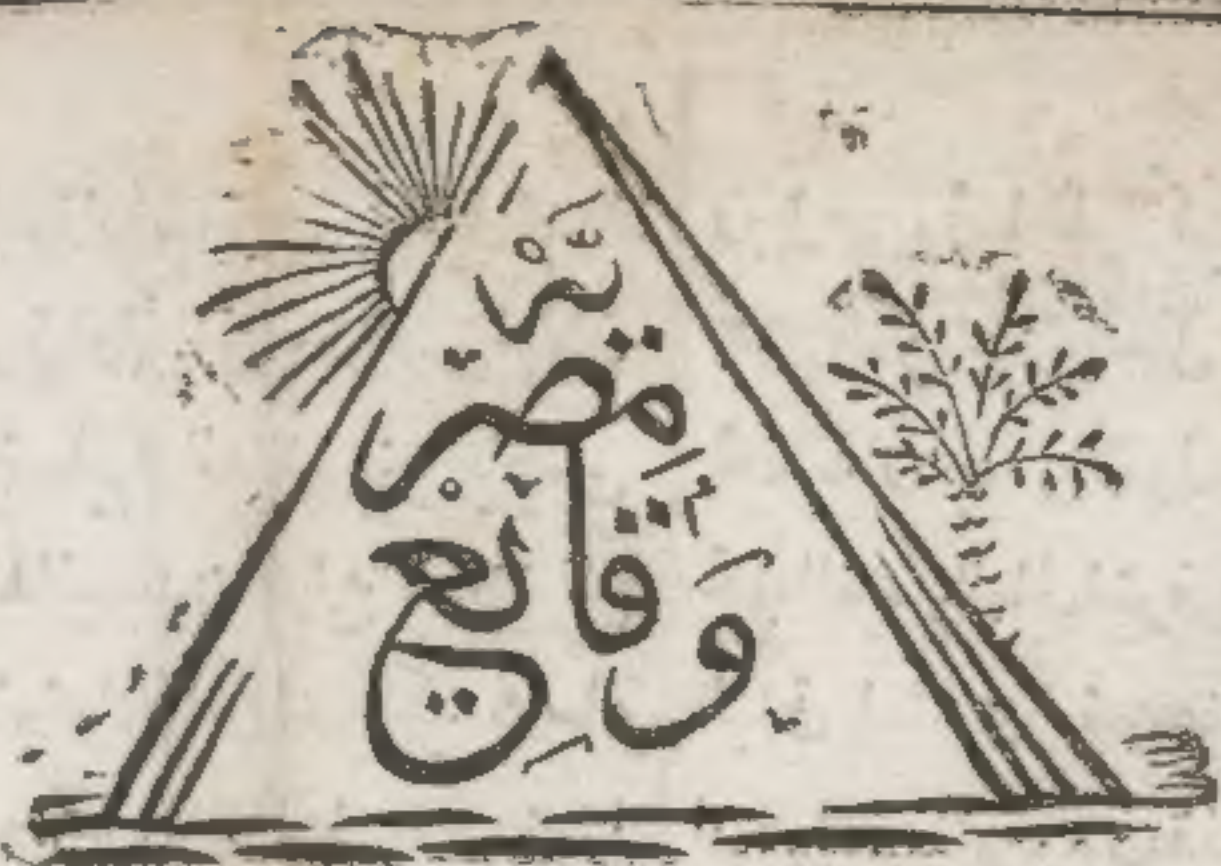 وقايع
مصرية